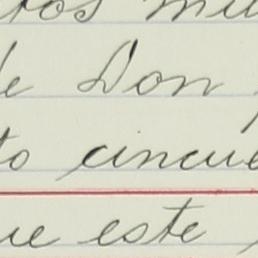 tos mu
de Don
to cincue
ue este